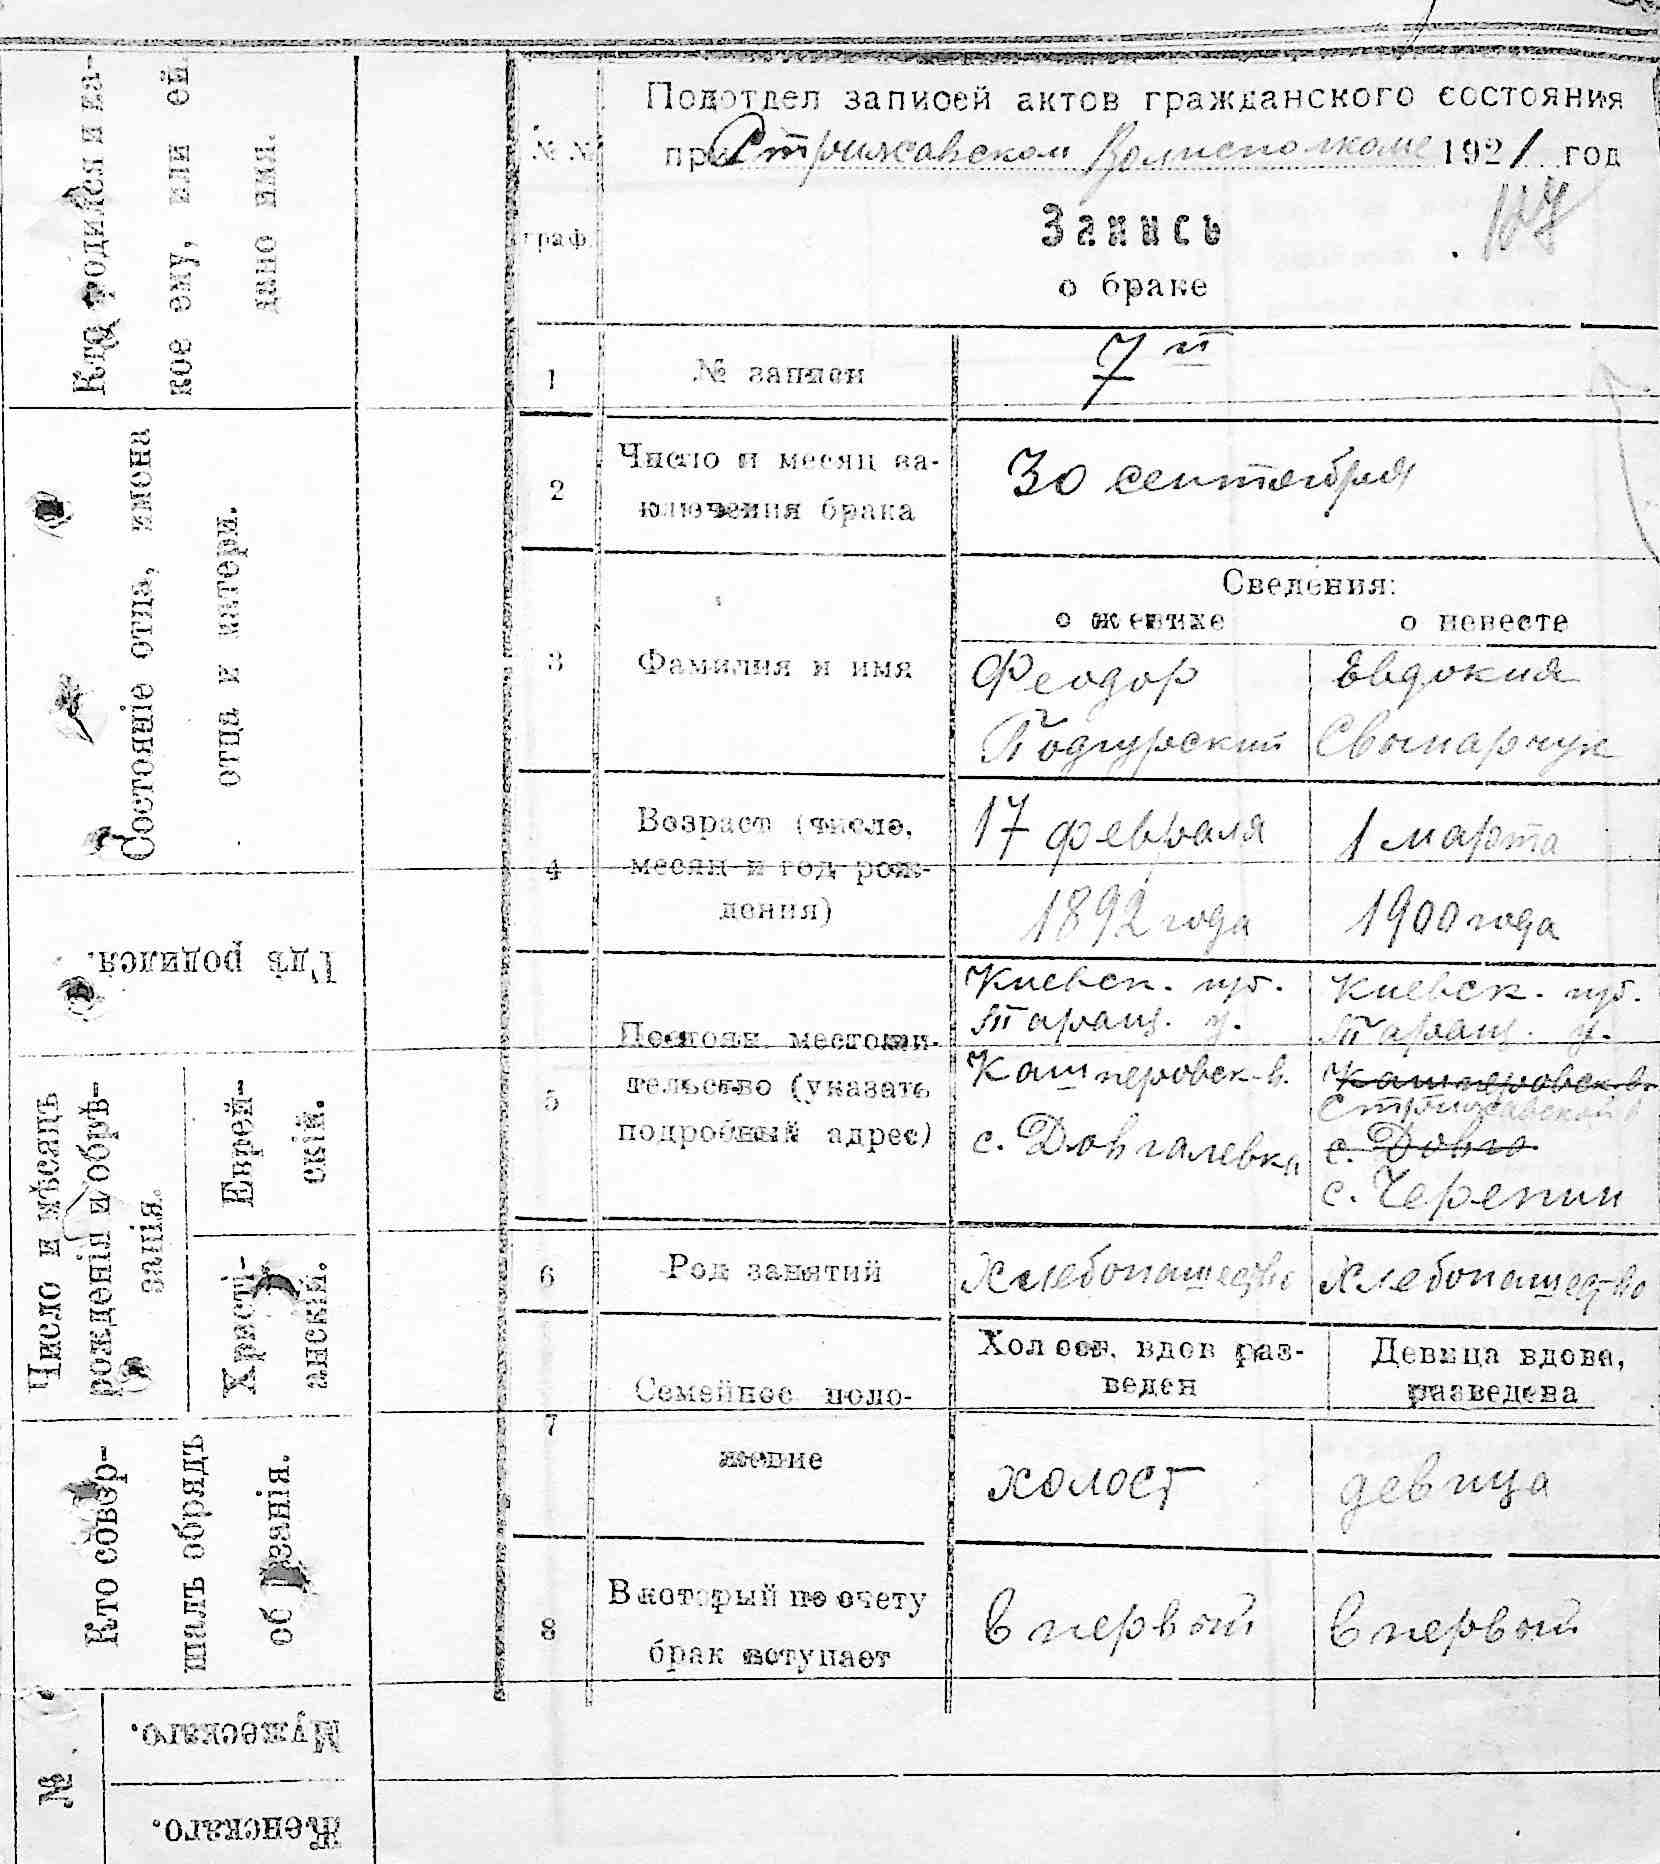 Подотдел записей актов гражданского состояния
при Стрижавском Волисполкоме 1921 год
№ №
граф.
Запись
о браке
107
1 № записи 7й
2 Число и месяц за-
ключения брака
30 сентября
Сведения:
о женихе о невесте
3 Фамилия и имя
Феодор Евдокия
Подгурский Свынарчук
4 Возраст (число,
месяц и год рож-
дения)
17 февраля 1 марта
1892 года 1900 года
5 Постоян. местожи-
тельство (указать
подробный адрес)
Киевск. губ. Киевск. губ.
Таращ. у. Таращ. у.
Кашперовск. в. Кашперовск. в.
Стрижавской в
с. Довгалевка с. Довго
с. Черепин
6 Род занятий хлебопашество хлебопашество
7 Семейное поло-
жение
Холост, вдов раз-
веден
Девица вдова,
разведена
холост девица
8 В который по счету
брак вступает
в первый в первый
Кто родился и ка-
кое ему, или ей
дано имя.
Состояніе отца, имена
отца и матери.
Гдѣ родился.
Число и мѣсяцъ
рожденія и обрѣ-
занія.
Еврей-
скій.
Христі-
анскій.
Кто совер-
шалъ обрядъ
обрѣзанія.
№
Мужескаго.
Женскаго.